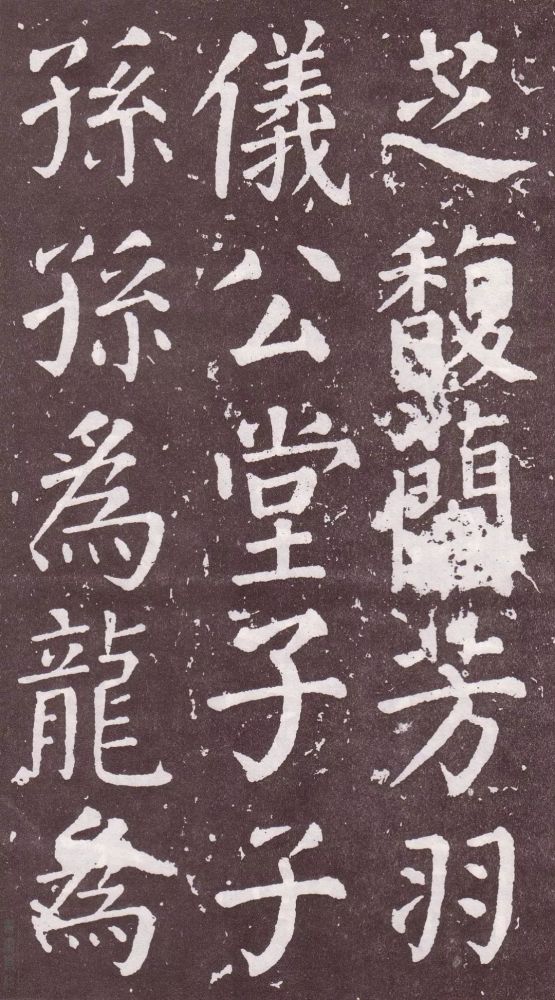 芝馥蘭芳羽
儀公堂子子
孫孫為龍為